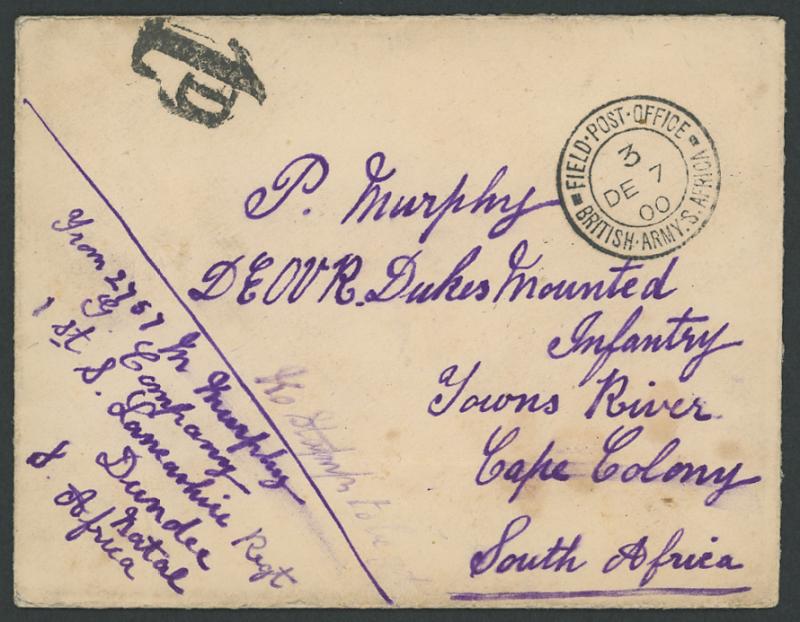 1D
FIELD·POST·OFFICE
3
DE 7
00
BRITISH·ARMY·S.AFRICA
P. Murphy
DEOVR. Dukes Mounted
Infantry
Towns River
Cape Colony
South Africa
From 2767 M Murphy
G. Company
1st S. Lancashire Regt
Dundee
Natal
S. Africa
No Stamps to be got